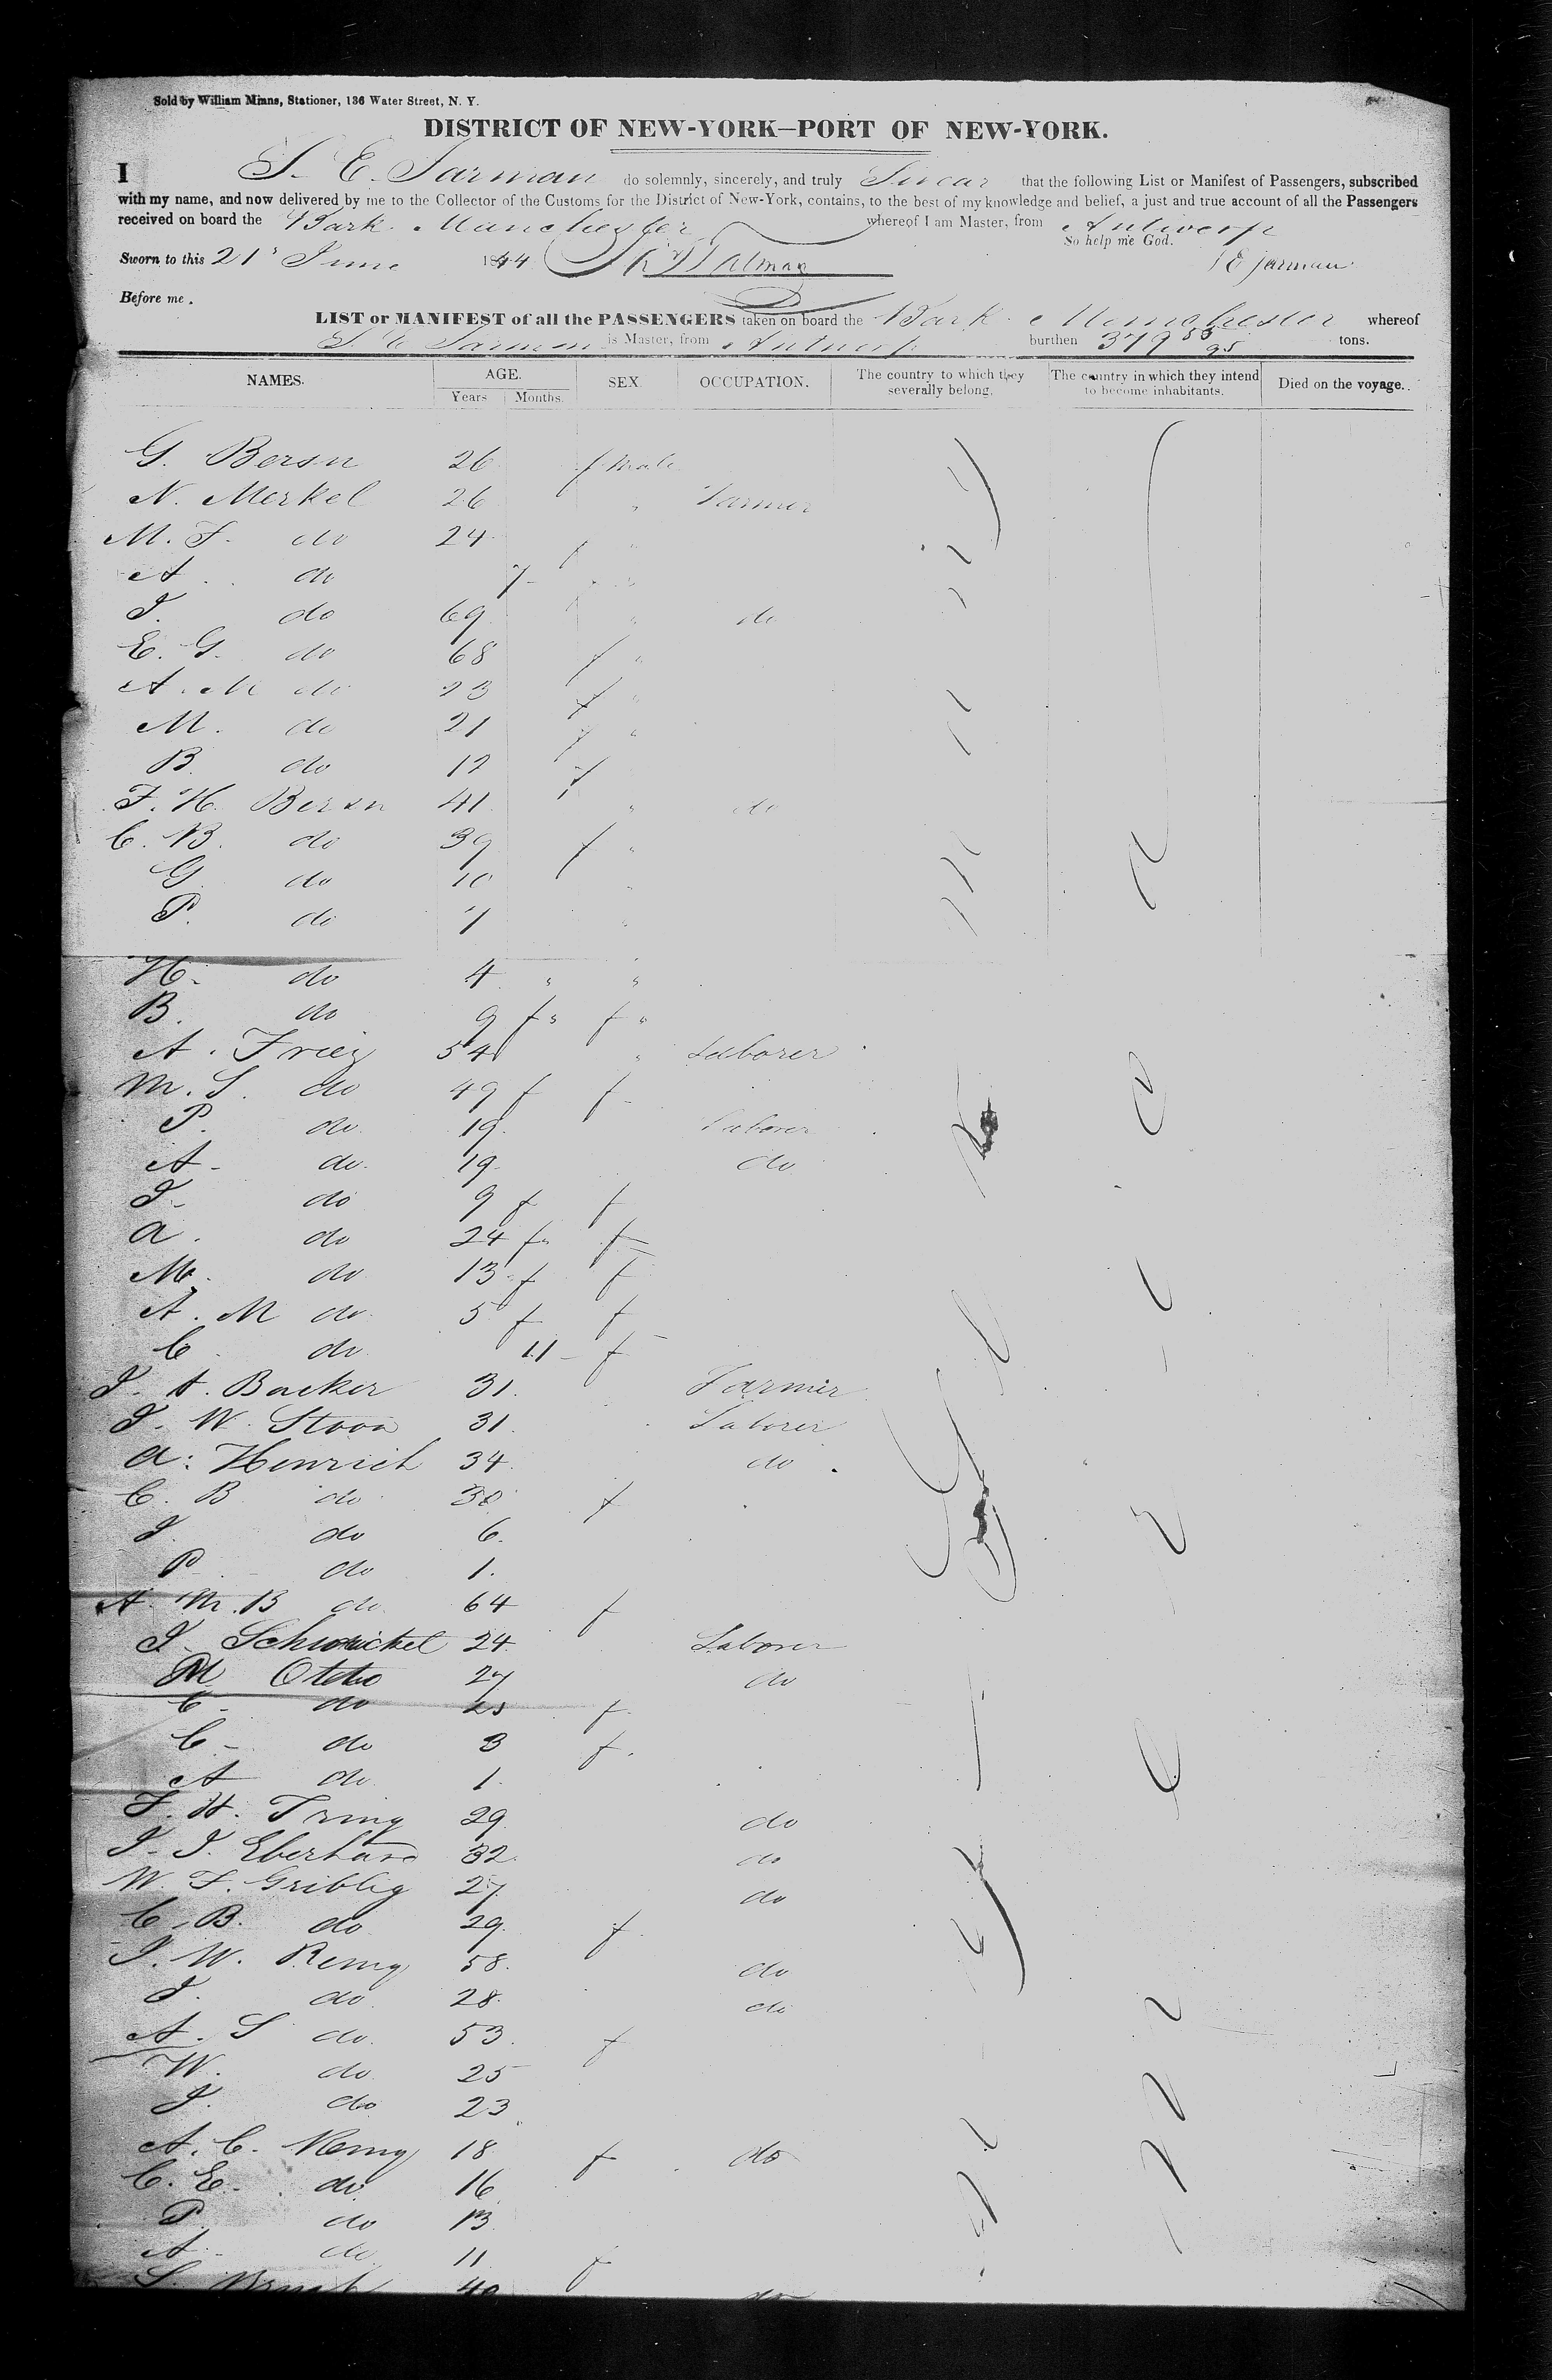 Sold by William Minns, Stationer, 136 Water Street, N. Y.
DISTRICT OF NEW-YORK—PORT OF NEW-YORK.
I S. E. Jarman do solemnly, sincerely, and truly Swear that the following List or Manifest of Passengers, subscribed
with my name, and now delivered by me to the Collector of the Customs for the District of New-York, contains, to the best of my knowledge and belief, a just and true account of all the Passengers
received on board the Bark Manchester whereof I am Master, from Antwerp
So help me God.
Sworn to this 21st June 1844 S E Jarman
Before me.
LIST or MANIFEST of all the PASSENGERS taken on board the Bark Manchester whereof
S E Jarman is Master, from Antwerp burthen 379 53/95 tons.
NAMES. AGE. SEX. OCCUPATION. The country to which they severally belong. The country in which they intend to become inhabitants. Died on the voyage.
Years Months.
G. Bersn 26 f Male
N. Merkel 26 " Farmer
M. F. do 24 f "
A. do 7
J. do 69 " do
E. G. do 68 f "
A. M do 23 f "
M. do 21 f "
B. do 12 f
F. H. Bersn 41 " do
C. B. do 39 f "
G do 10 "
P. do 7 "
H. do 4 " "
B. do 9 f " f "
A. Friez 54 " Laborer
M. S. do 49 f f
P. do 19 Laborer
A. do 19 do
J. do 9 f f
A. do 24 f f
M. do 13 f f
A. M do 5 f f
C. do 11 f
J. A. Backer 31 Farmer
J. W. Stoon 31 Laborer
A. Henrich 34 do
C. B do 30 f
J. do 6
P. do 1
A. M. B do 64 f
J. Schwrickel 24 Laborer
M Otcho 27 do
C. do 25 f
C. do 3 f
A do 1
F. H. Tring 29 do
J. J. Eberhard 32 do
W. F. Griblig 27 do
C. B. do 29 f
J. W. Remy 58 do
J. do 28 do
A. S do 53 f
W. do 25
J. do 23
A. C. Remy 18 f do
C. E. do 16
P. do 13
A. do 11 f
S. 40 do
Germany
America